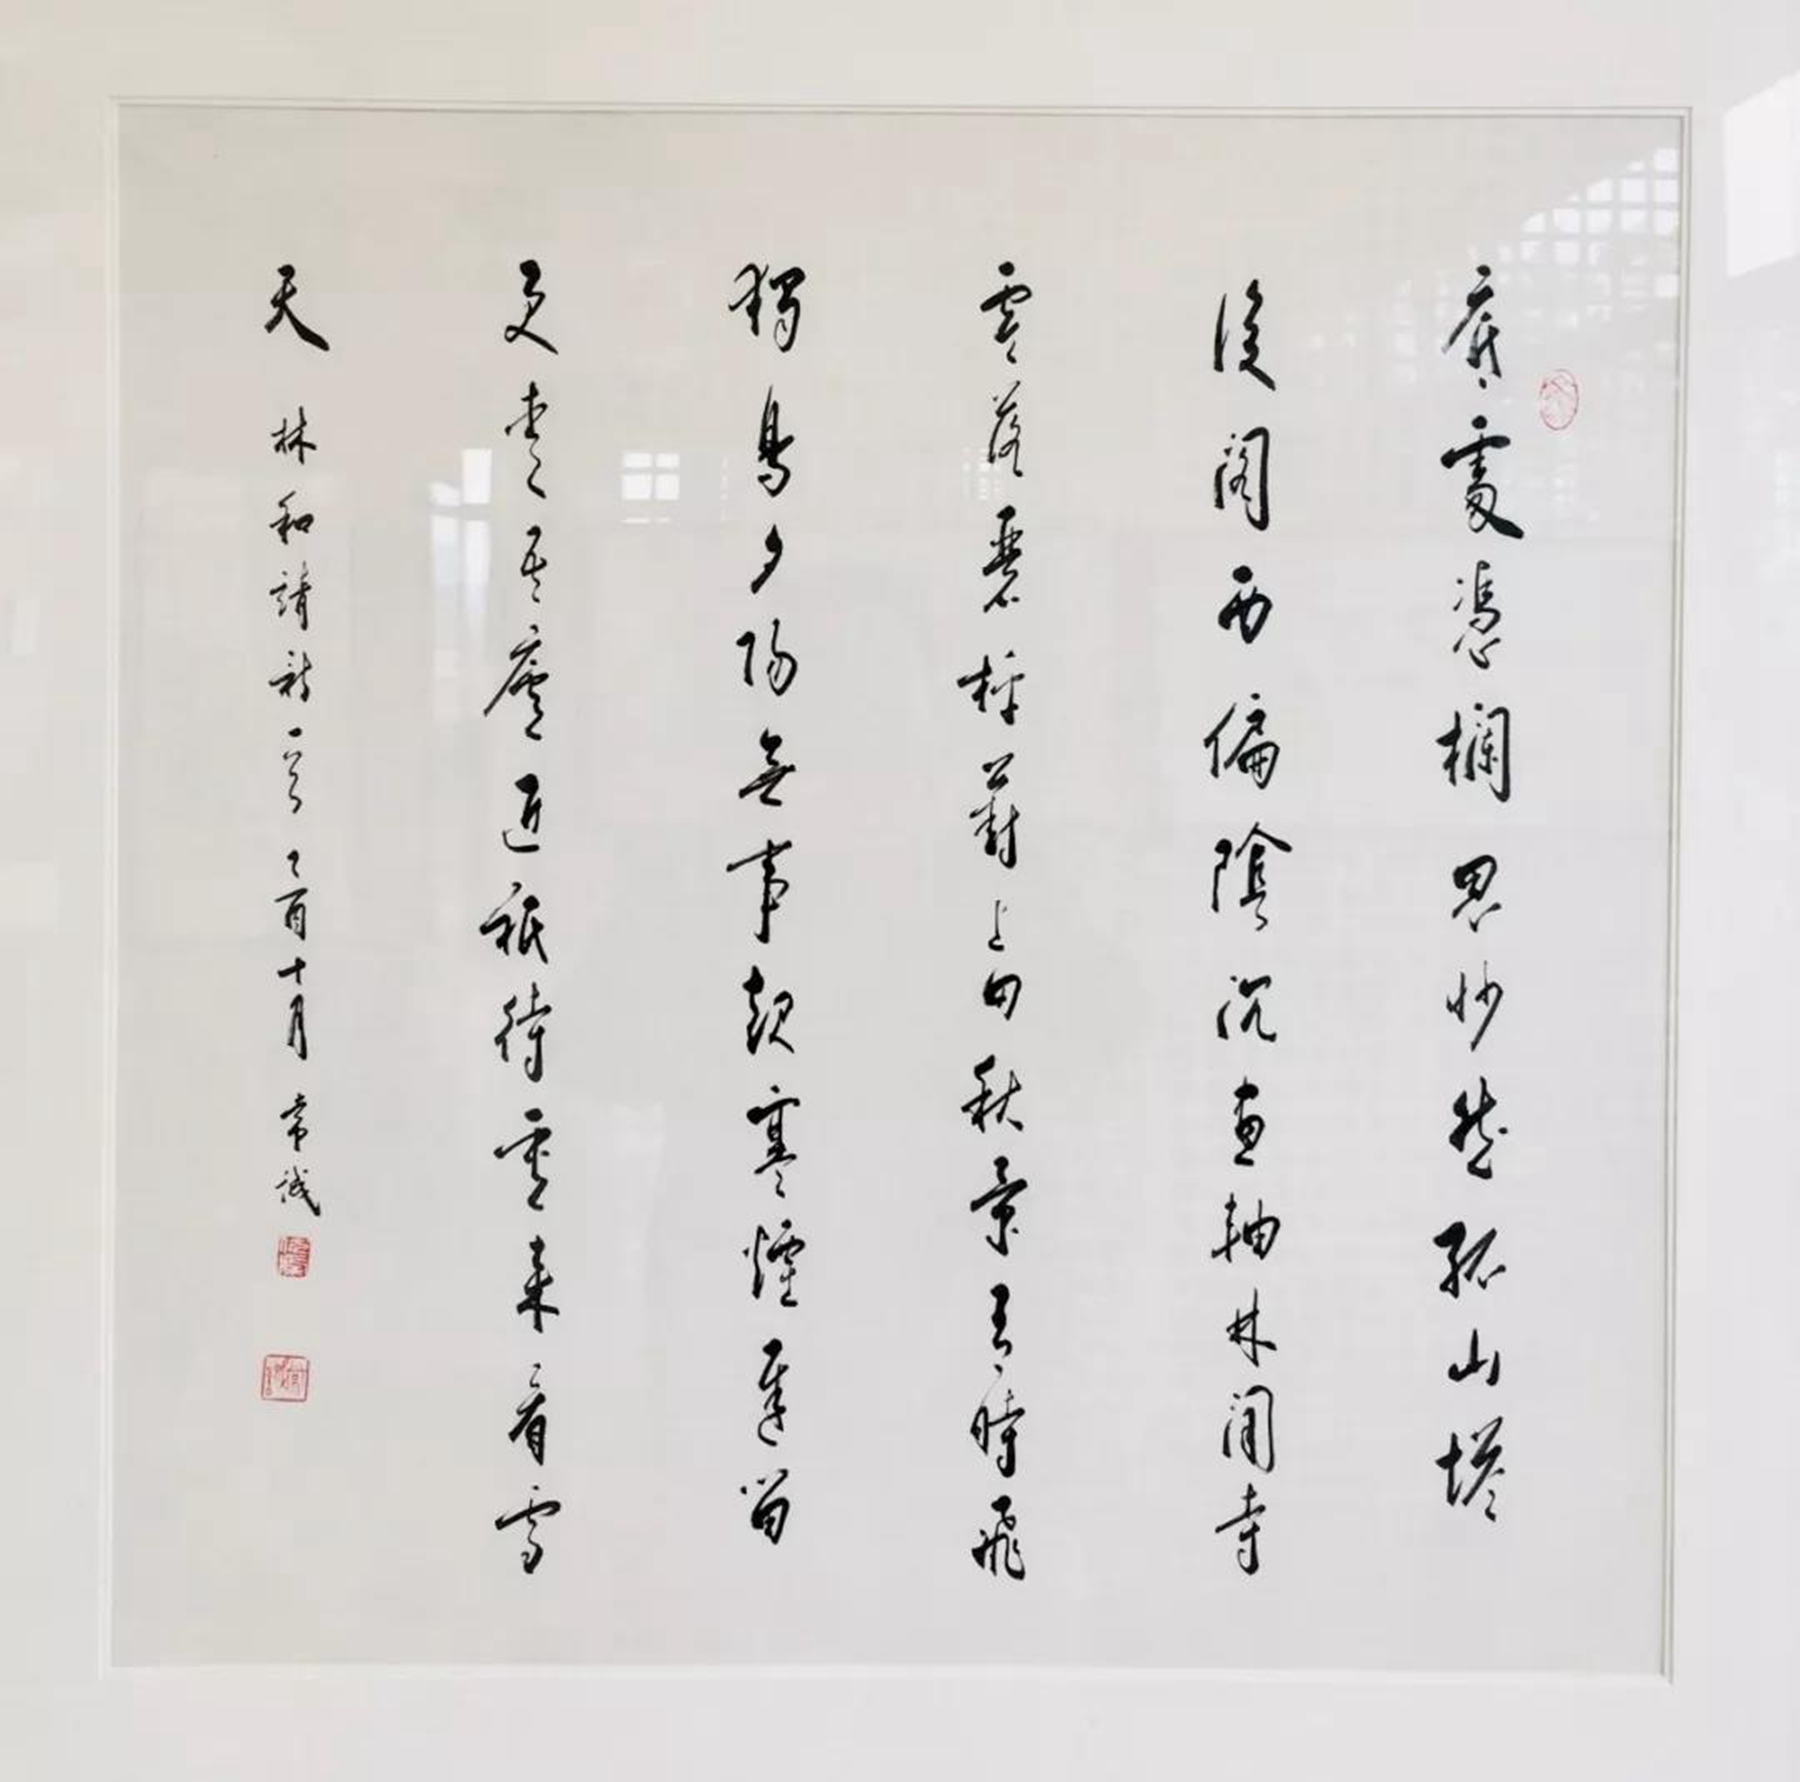 底處憑欄思眇然孤山塔
後閣西偏陰沉畫軸林間寺
零落碁枰葑上田秋景有時飛
獨鳥夕陽無事起寒煙遲留
更愛吾廬近祇待重來看雪
天 林和靖詩一首 乙酉十月 常誠